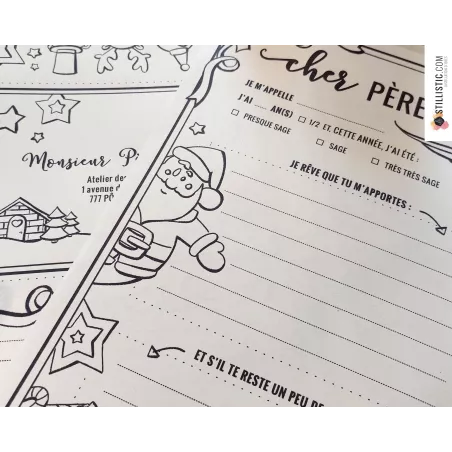 cher PÈRE
JE M'APPELLE
J'AI ..... AN(S) ☐ 1/2 ET, CETTE ANNÉE, J'AI ÉTÉ :
☐ PRESQUE SAGE ☐ SAGE ☐ TRÈS TRÈS SAGE
JE RÊVE QUE TU M'APPORTES :
ET S'IL TE RESTE UN PEU DE
Monsieur P
Atelier de
1 avenue d
777 PÔ
STILLISTIC.COM